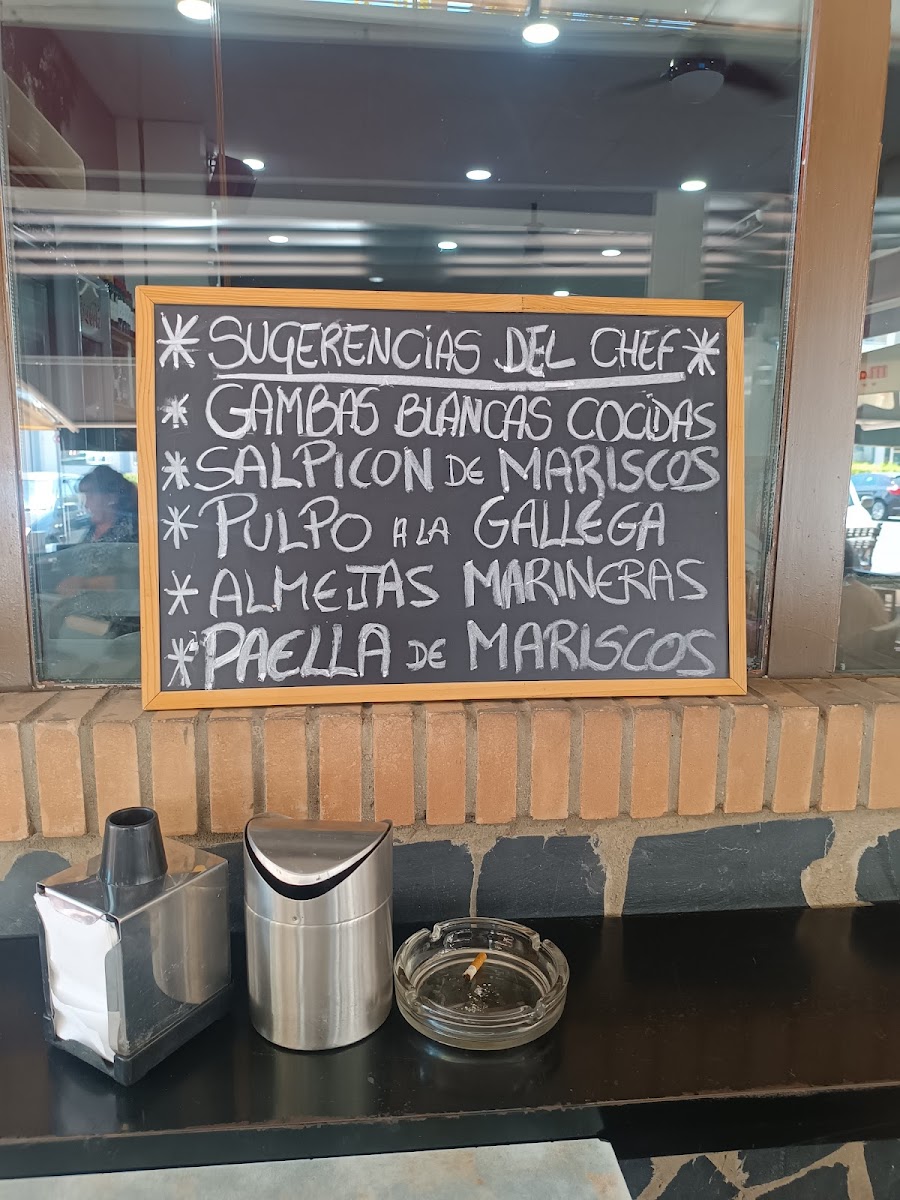 * SUGERENCiAS DEL CHEF *
* GAMBAS BLANCAS COCiDAS
* SALPICON DE MARISCOS
* PULPO A LA GALLEGA
* ALMEJAS MARINERAS
* PAELLA DE MARISCOS